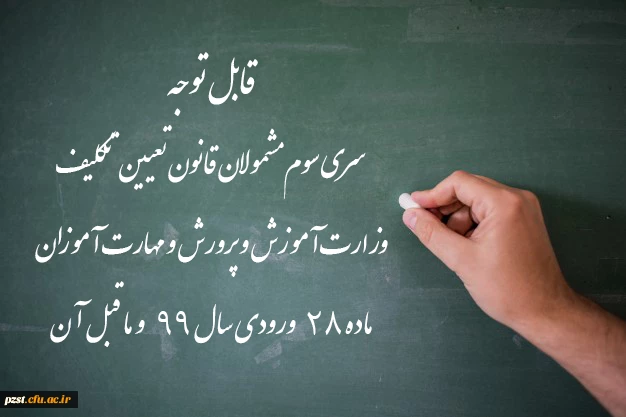 قابل توجه
سری سوم مشمولان قانون تعیین تکلیف
وزارت آموزش و پرورش و مهارت آموزان
ماده ۲۸ ورودی سال ۹۹ و ماقبل آن
pzst.cfu.ac.ir